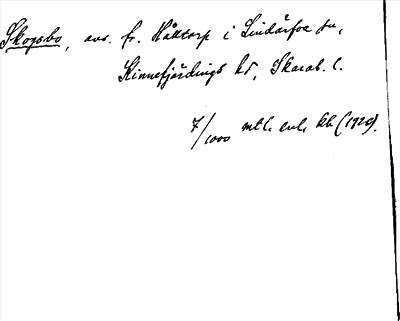 Skogsbo, avs. fr. Hålltorp i Lindärfva sn,
Kinnefjärdings hd, Skarab. l.
7/1000 mtl. enl. kb (1929).